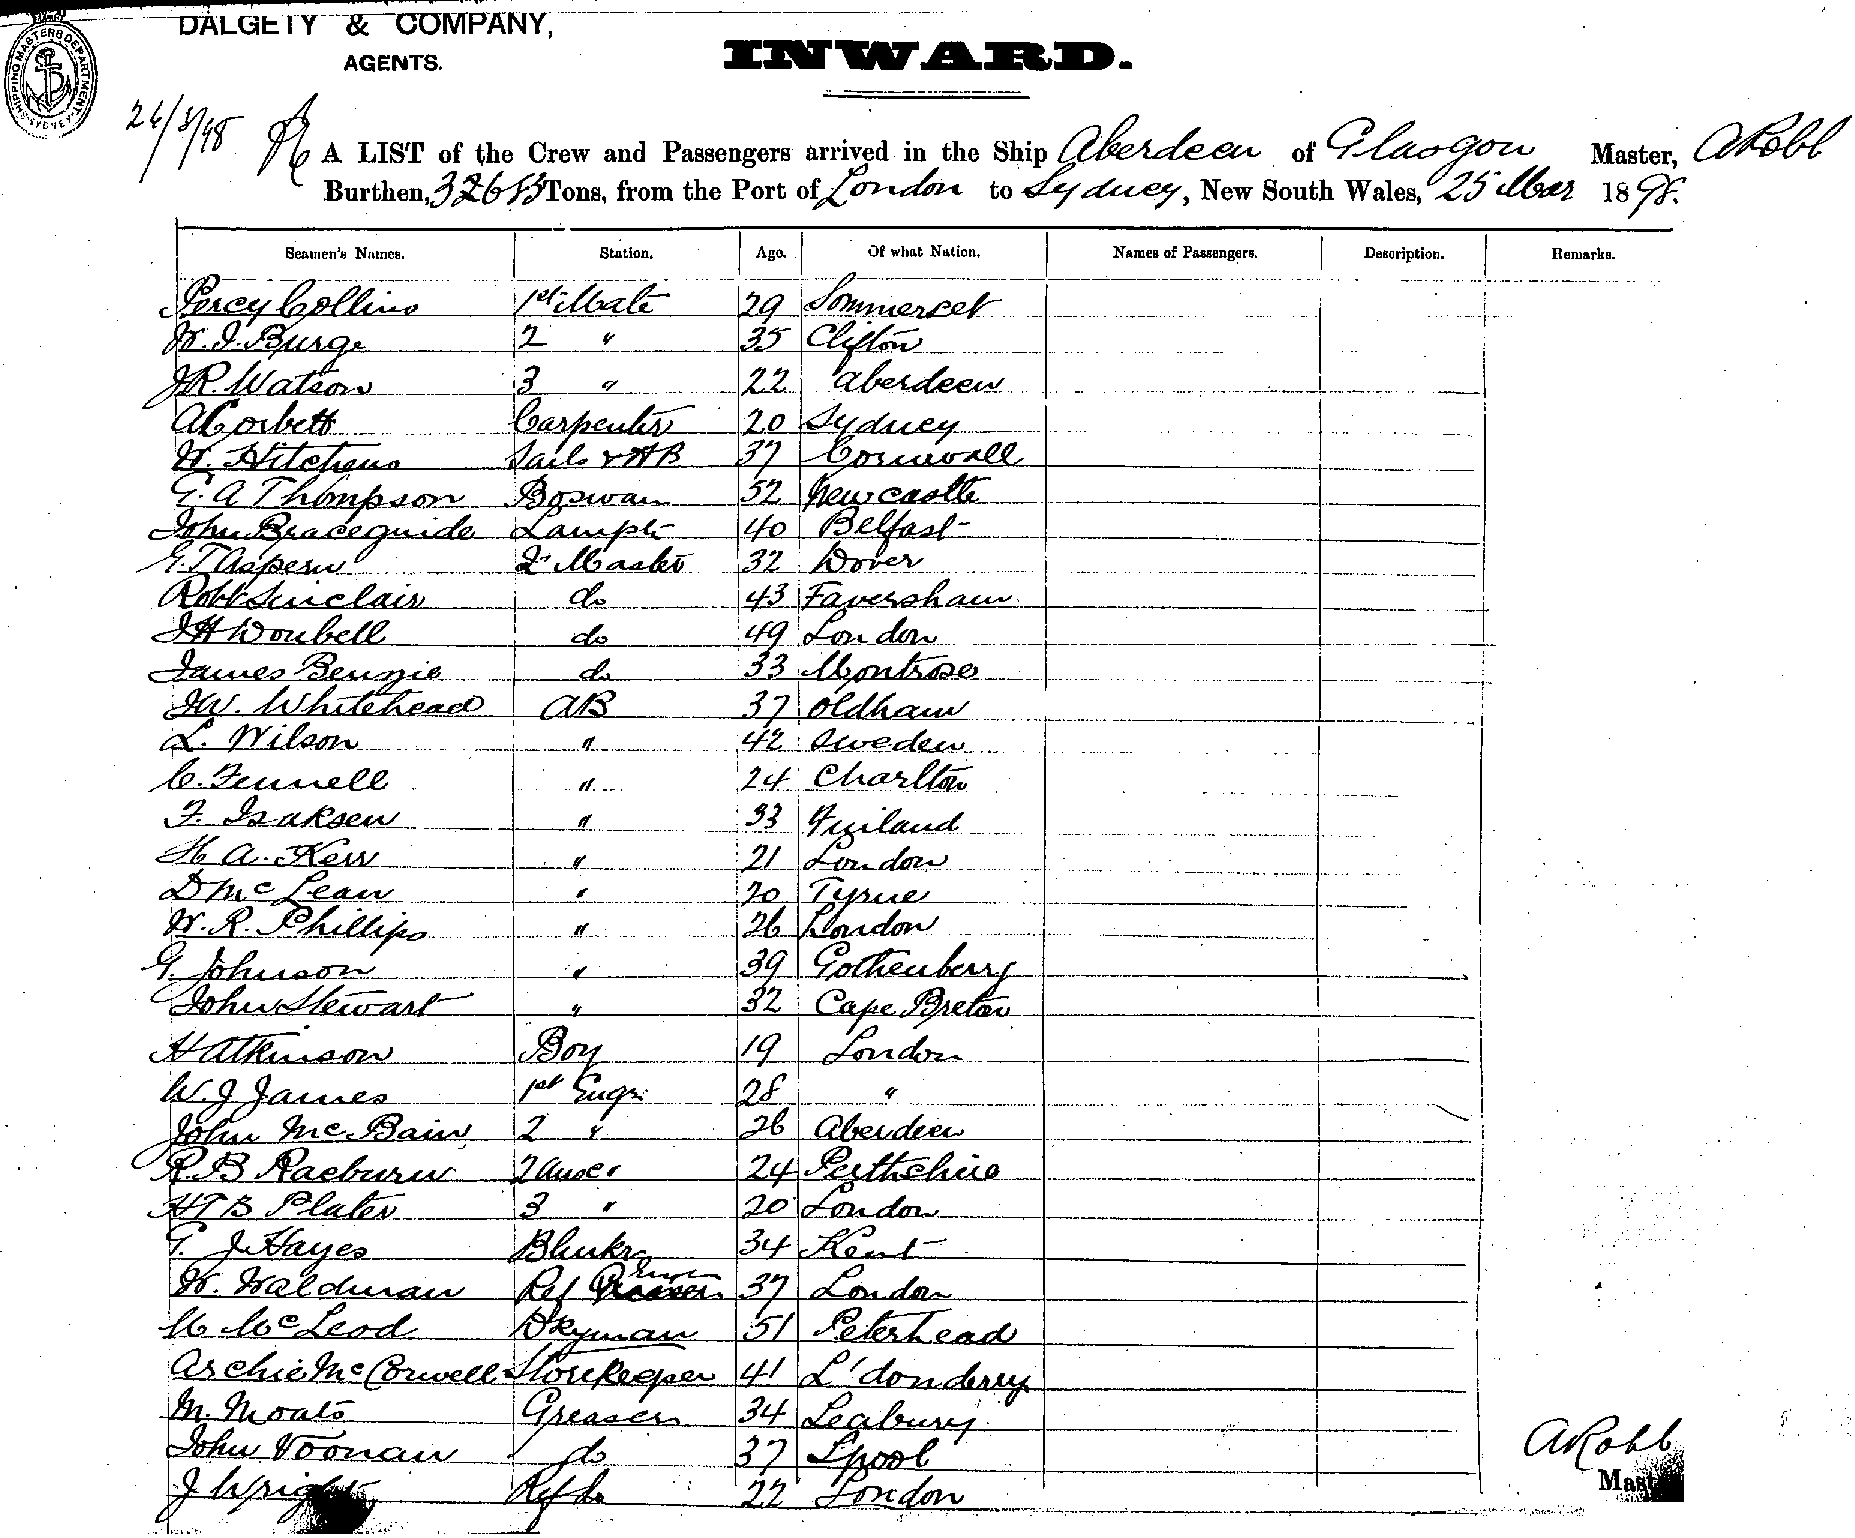 DALGETY & COMPANY,
AGENTS.
INWARD.
SHIPPING MASTERS DEPARTMENT SYDNEY
24/3/98
A LIST of the Crew and Passengers arrived in the Ship Aberdeen of Glasgow Master, A Robb
Burthen, Tons, from the Port of London to Sydney, New South Wales, 25 Mar 1898.
Seamen's Names. Station. Age. Of what Nation. Names of Passengers. Description. Remarks.
Percy Collins 1st Mate 29 Sommerset
W. I. Burge 2 " 35 Clifton
J R. Watson 3 " 22 Aberdeen
A Corbett Carpenter 20 Sydney
W. Hitchens Sails & AB 37 Cornwall
G. A Thompson Boswain 52 Newcastle
John Braceguide Lampts 40 Belfast
G. T Aspern Qr Master 32 Dover
Robt Sinclair do 43 Faversham
J H Woubell do 49 London
James Benzie do 33 Montrose
J W. Whitehead AB 37 Oldham
L. Wilson " 42 Sweden
C. Fennell " 24 Charlton
F. Isaksen " 33 Finland
H A. Kerr " 21 London
D McLean " 20 Tyrne
W. R. Phillips " 26 London
G. Johnson " 39 Gothenberg
John Stewart " 32 Cape Breton
H Atkinson Boy 19 London
W. J James 1st Engr 28 "
John McBain 2 " 26 Aberdeen
R. B Raeburn 24 Perthshire
H T B Plater 3 " 20 London
G. J. Hayes 34 Kent
W. Waldman Ref Greaser 37 London
M McLeod Dkyman 51 Peterhead
Archie McCorwell Storekeeper 41 L'donderry
M. Moats Greaser 34 Leabury
John Noonan do 37 Lpool
J Wright Ref do 22 London
A Robb
Mast